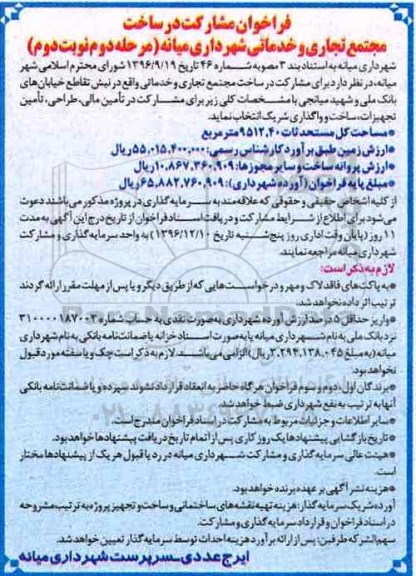 فراخوان مشارکت در ساخت
مجتمع تجاری و خدماتی شهرداری میانه (مرحله دوم نوبت دوم)
شهرداری میانه به استناد بند ۳ مصوبه شماره ۴۶ تاریخ ۱۳۹۶/۹/۱۹ شورای محترم اسلامی شهر
میانه، در نظر دارد برای مشارکت در ساخت مجتمع تجاری و خدماتی واقع در نبش تقاطع خیابان‌های
بانک ملی و شهید میانجی با مشخصات کلی زیر برای مشارکت در تأمین مالی، طراحی، تأمین
تجهیزات، ساخت و واگذاری شریک انتخاب نماید.
*مساحت کل مستحدثات ۹۵۱۲.۴۰ مترمربع
*ارزش زمین طبق برآورد کارشناس رسمی: ۵۵,۰۱۵,۴۰۰,۰۰۰ ریال
*ارزش پروانه ساخت و سایر مجوزها: ۱۰,۸۶۷,۳۶۰,۹۰۹ ریال
*مبلغ پایه فراخوان (آورده شهرداری): ۶۵,۸۸۲,۷۶۰,۹۰۹ ریال
از کلیه اشخاص حقیقی و حقوقی که علاقه‌مند به سرمایه گذاری در پروژه مذکور می‌باشند دعوت
می‌شود برای اطلاع از شرایط مشارکت و دریافت اسناد فراخوان از تاریخ درج این آگهی به مدت
۱۱ روز (پایان وقت اداری روز پنج‌شنبه تاریخ ۱۳۹۶/۱۲/۱۰) به واحد سرمایه گذاری و مشارکت
شهرداری میانه مراجعه نمایند.
لازم به ذکر است:
*به پاکت‌های فاقد لاک و مهر و درخواست‌هایی که از طریق دیگر و یا پس از مهلت مقرر ارائه گردند
ترتیب اثر داده نخواهد شد.
*واریز حداقل ۵ درصد ارزش آورده شهرداری به صورت نقدی به حساب شماره ۳۱۰۰۰۰۱۸۷۰۰۳
نزد بانک ملی به نام شهرداری میانه یا به صورت اسناد خزانه یا ضمانت‌نامه بانکی به نام شهرداری
میانه (به مبلغ ۳,۲۹۴,۱۳۸,۰۴۵ ریال) الزامی می‌باشد. لازم به ذکر است چک و یا سفته مورد قبول
نخواهد بود.
*برندگان اول، دوم و سوم فراخوان هرگاه حاضر به انعقاد قرارداد نشوند سپرده و یا ضمانت‌نامه بانکی
آنها به ترتیب به نفع شهرداری ضبط خواهد شد.
*سایر اطلاعات و جزئیات مربوط به مشارکت در اسناد فراخوان مندرج است.
*تاریخ بازگشایی پیشنهادها یک روز کاری پس از اتمام تاریخ دریافت پیشنهادها خواهد بود.
*هیئت عالی سرمایه گذاری و مشارکت شهرداری میانه در رد یا قبول هر یک از پیشنهادها مختار
است.
*هزینه نشر آگهی بر عهده برنده خواهد بود.
آورده شریک سرمایه گذار: هزینه تهیه نقشه‌های ساختمانی و ساخت و تجهیز پروژه به ترتیب مشروحه
در اسناد فراخوان و قرارداد سرمایه گذاری و مشارکت.
سهم‌الشرکه طرفین: پس از ارائه برآورد هزینه احداث توسط سرمایه گذار تعیین خواهد شد.
ایرج عددی ـ سرپرست شهرداری میانه